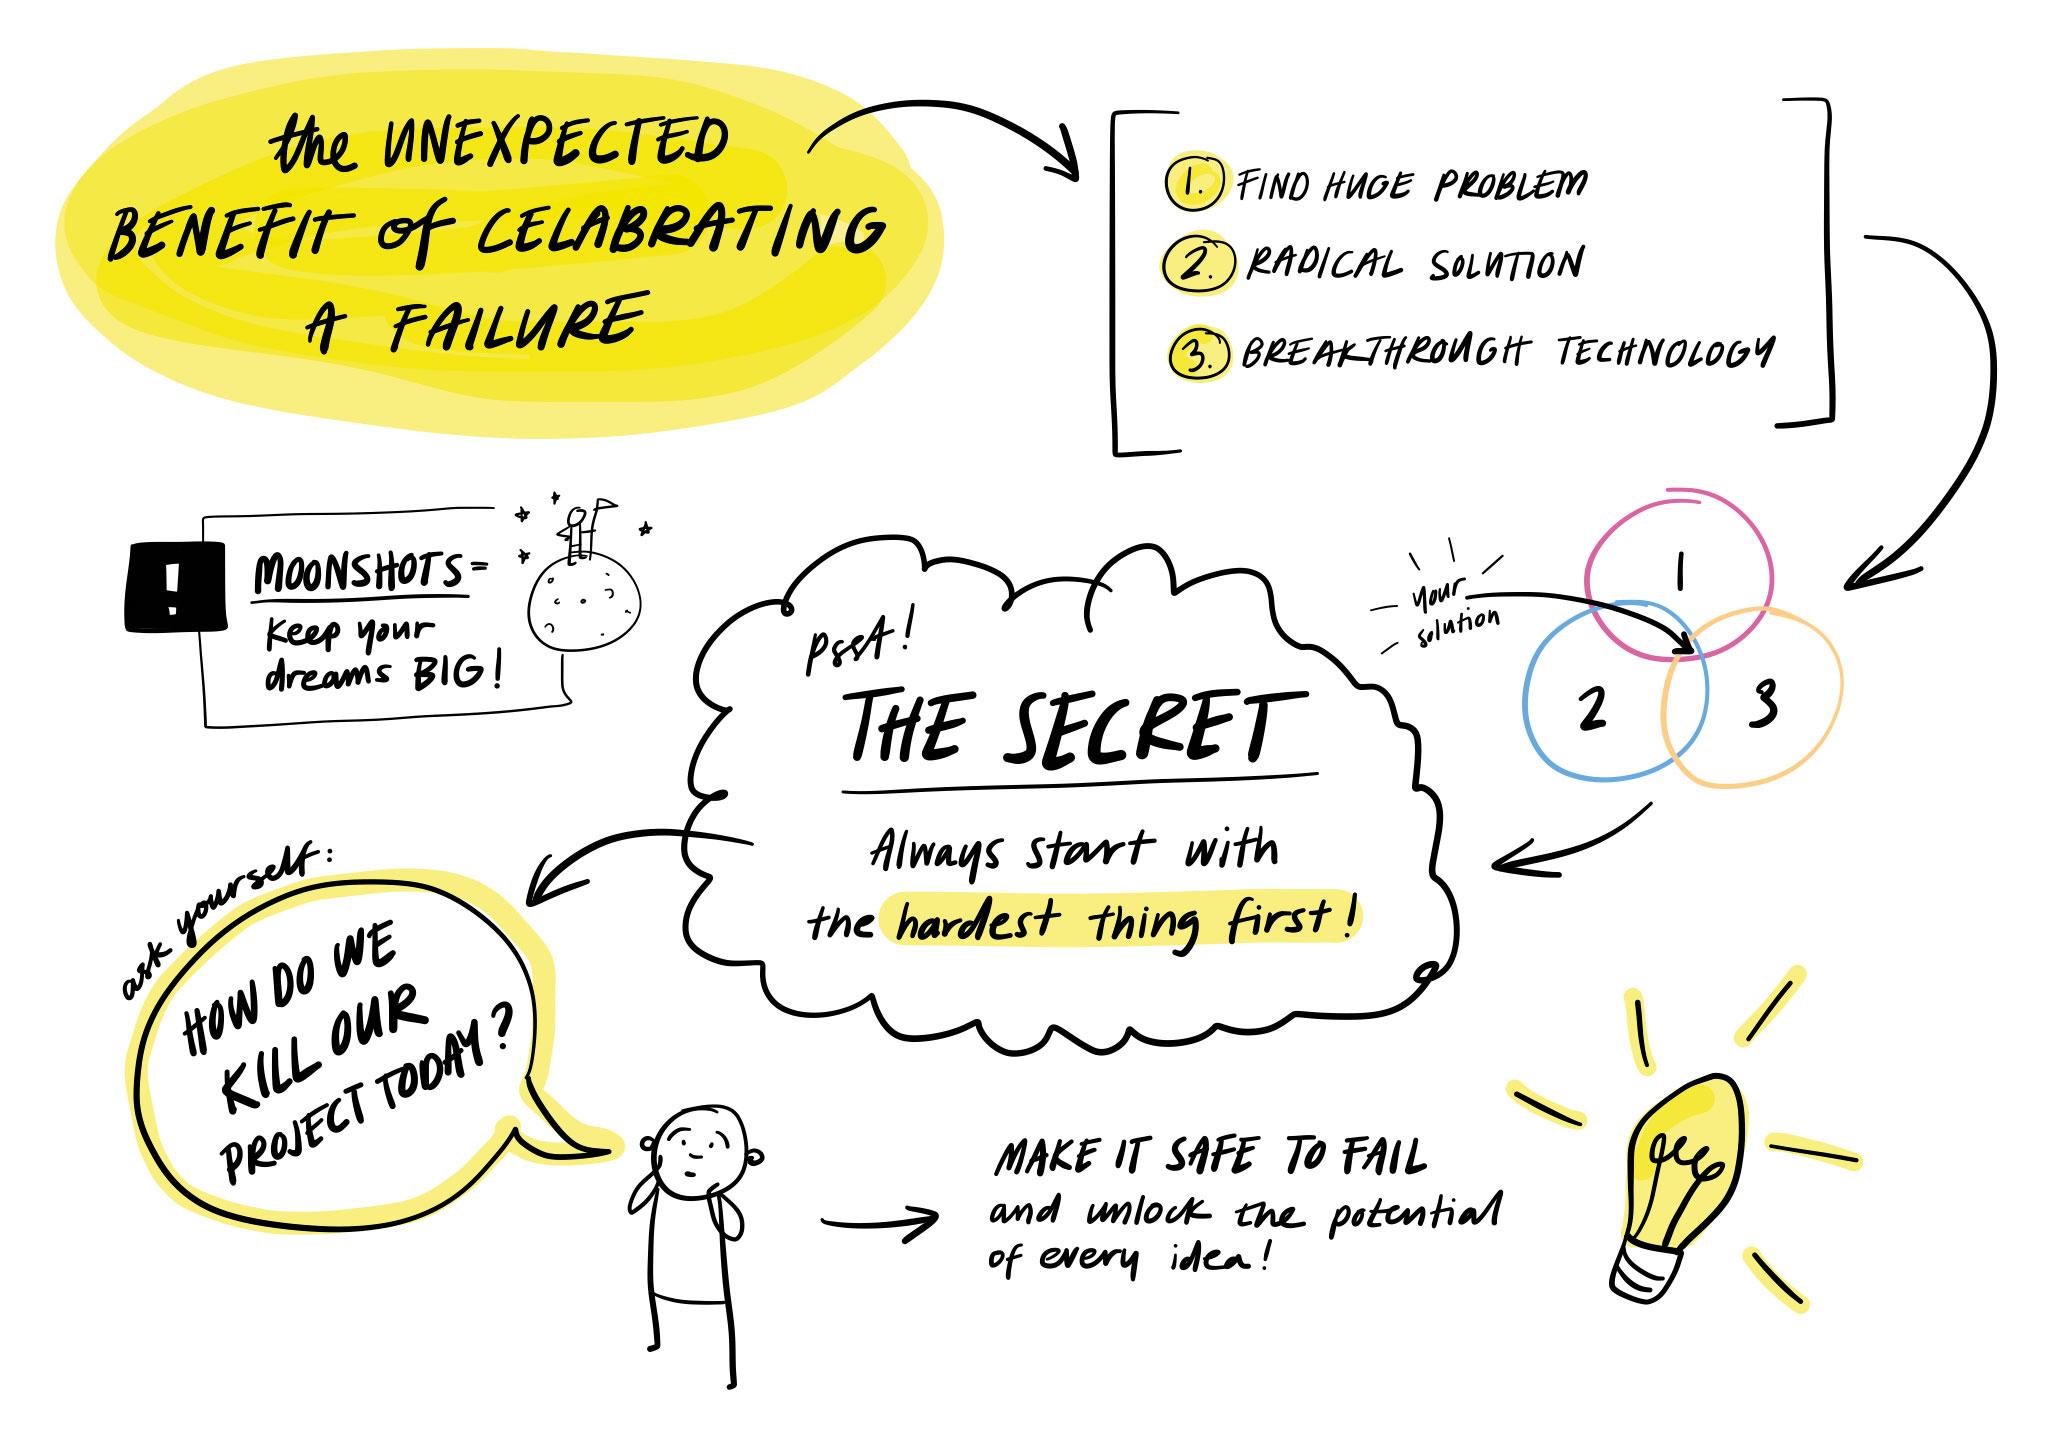 the UNEXPECTED
BENEFIT of CELABRATING
A FAILURE
1. FIND HUGE PROBLEM
2. RADICAL SOLUTION
3. BREAKTHROUGH TECHNOLOGY
!
MOONSHOTS=
Keep your
dreams BIG!
1
2
3
your
solution
PssA!
THE SECRET
Always start with
the hardest thing first!
ask yourself:
HOW DO WE
KILL OUR
PROJECT TODAY?
MAKE IT SAFE TO FAIL
and unlock the potential
of every idea!